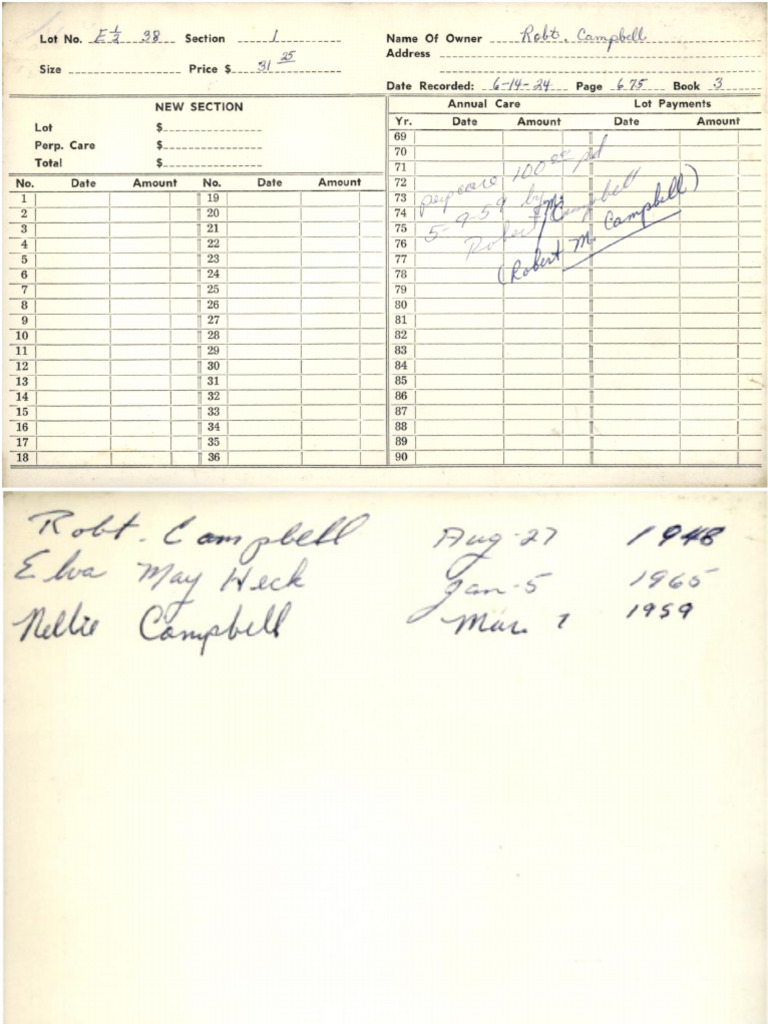 Lot No. E ½ 38 Section 1
Name Of Owner Robt. Campbell
Address
Size Price $ 31 25
Date Recorded: 6-14-24 Page 675 Book 3
NEW SECTION
Lot $
Perp. Care $
Total $
No. Date Amount No. Date Amount
1 19
2 20
3 21
4 22
5 23
6 24
7 25
8 26
9 27
10 28
11 29
12 30
13 31
14 32
15 33
16 34
17 35
18 36
Annual Care Lot Payments
Yr. Date Amount Date Amount
69
70
71
72
73
74
75
76
77
78
79
80
81
82
83
84
85
86
87
88
89
90
perp care 100.00 pd
5-9-59 by
Robert Campbell
(Robert M. Campbell)
Robt. Campbell Aug-27 1948
Elva May Heck Jan-5 1965
Nellie Campbell Mar. 7 1959